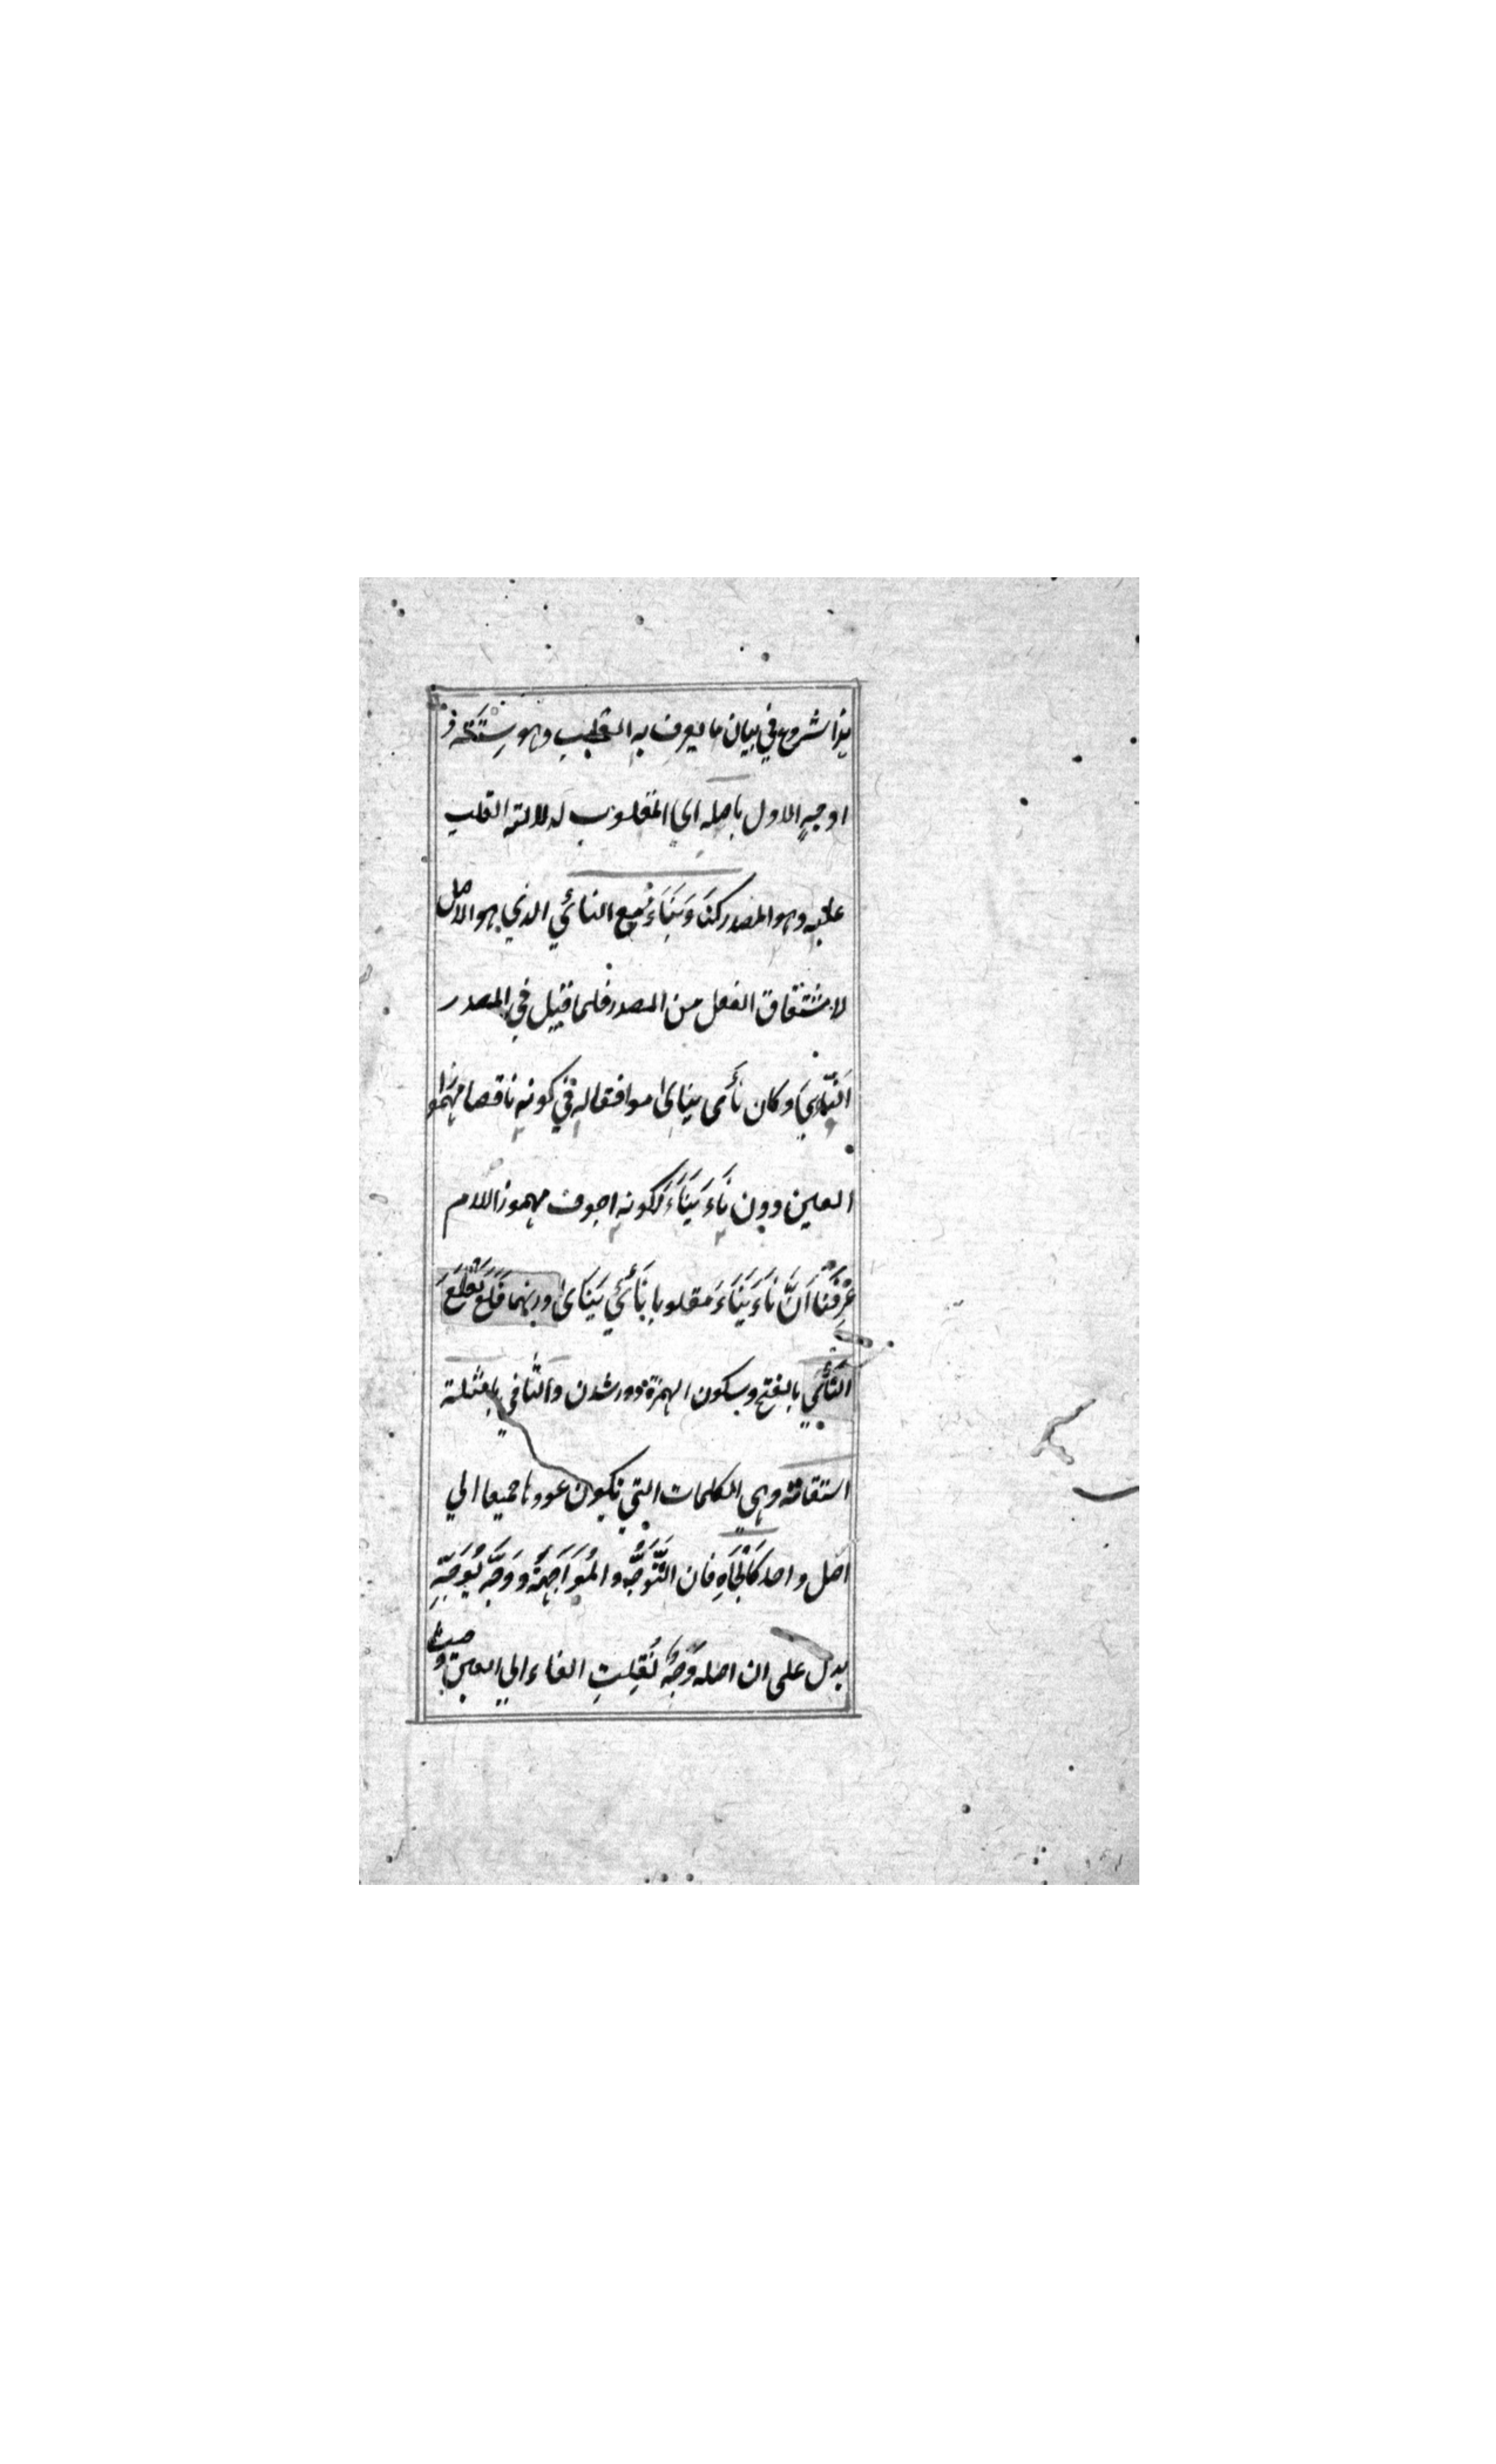 هذا شروع في بيان ما يعرف به القلب وهو ستة
اوجهٍ الاول باصله اي المقلوب لدلالته القلب
عليه وهو المصدر كنَاءَ يَنَاءُ مع النائي الذي هو الاصل
لاشتقاق الفعل من المصدر فلما قيل في المصدر
النّأي وكان نَأَى ينأى موافقا له في كونه ناقصا مهموز
العين دون نَاءَ يَنَاءُ لكونه اجوف مهموز اللام
عَرفْنَا اَنَّ نَاءَ يَنَاءَ مقلوبا نَأَى يَنأى وزنهما فَلَعَ يَفْلَعُ
النَّأْي بالفتح وسكون الهمزة دور شدن والثاني بامثلة
اشتقاقه وهي الكلمات التي تكون عودها جميعا الي
اصل واحد كَالْجَاهِ فان التَّوَجُّه والمُوَاجَهَة ووَجَّه يُوَجِّهُ
يدل على ان اصله وَجْهٌ نُقِلَتِ الفاء الي العين